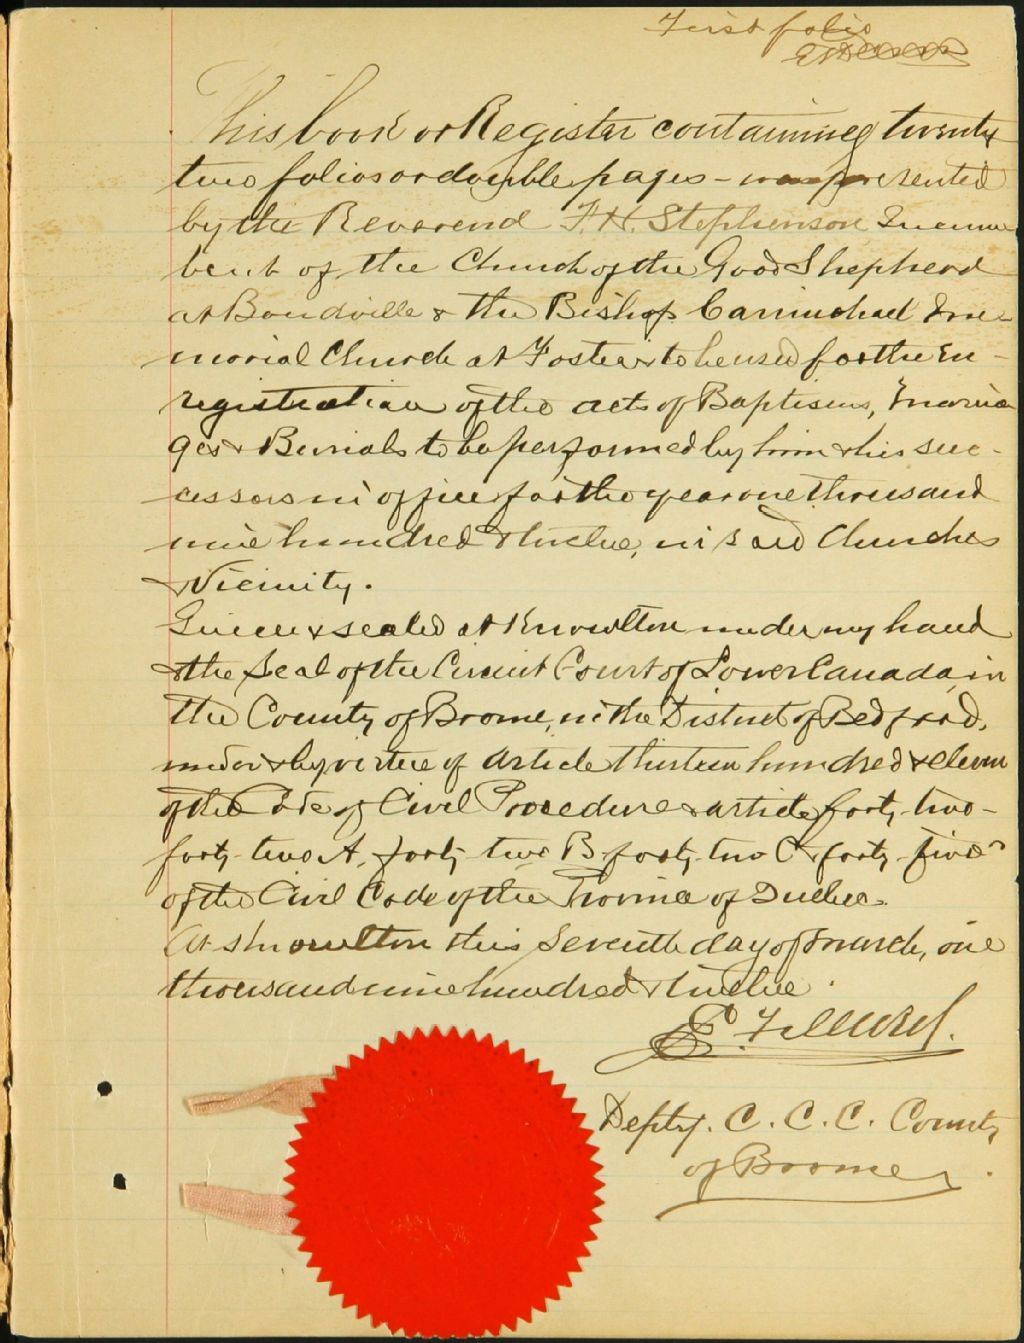 First folio
This book or Register containing twenty
two folios or double pages - was presented
by the Reverend F. H. Stephenson Incum
bent of the Church of the Good Shepherd
at Bondville & the Bishop Carmichael Me-
morial Church at Foster to be used for the en-
registration of the acts of Baptisms, Marria
ges & Burials to be performed by him & his suc-
cessors in office for the year one thousand
nine hundred & twelve, in said Churches
& Vicinity.
Given & sealed at Knowlton under my hand
& the Seal of the Circuit Court of Lower Canada, in
the County of Brome, in the District of Bedford,
under & by virtue of Article thirteen hundred & eleven
of the Code of Civil Procedure & article forty-two-
forty-two A, forty-two B forty-two C & forty-five
of the Civil Code of the Province of Quebec.
At Knowlton this Seventh day of March, one
thousand nine hundred & twelve.
E. F.
Depty. C. C. C. County
of Brome.